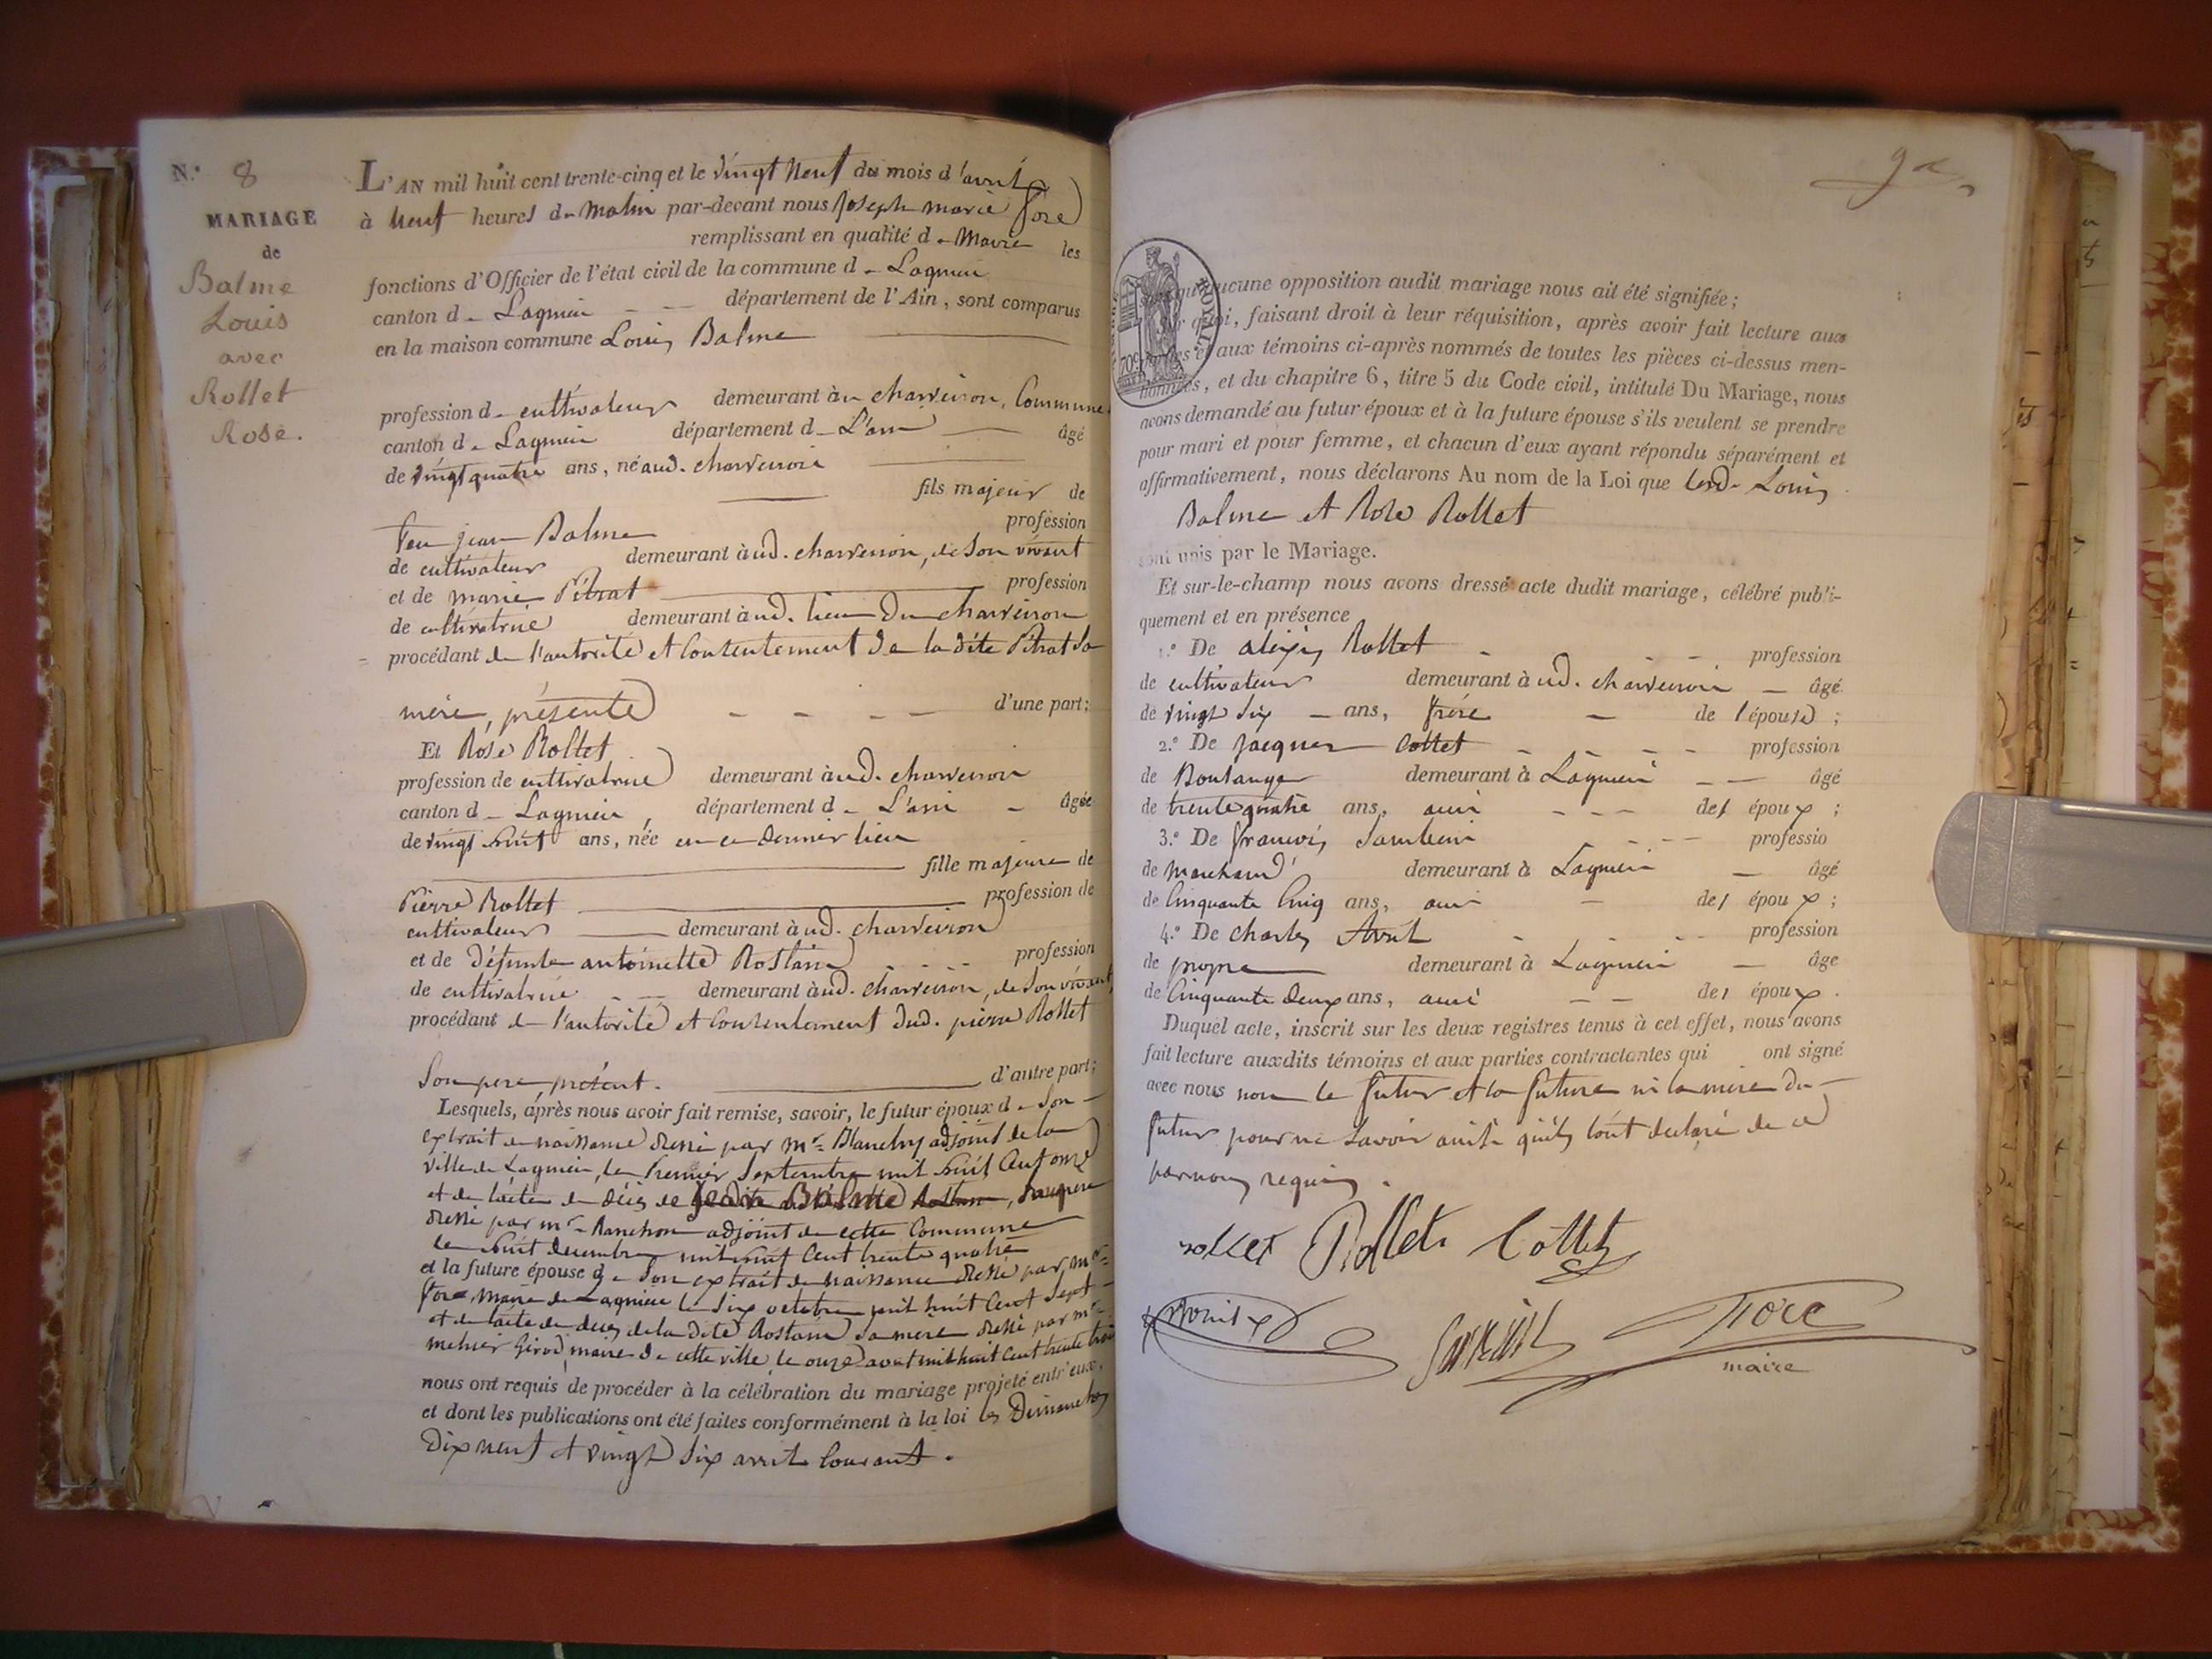 N.º 8
MARIAGE
de
Balme
Louis
avec
Rollet
Rose.
L'AN mil huit cent trente-cinq et le vingt neuf du mois d'avril
à neuf heures du matin par-devant nous Joseph marie fore
remplissant en qualité de Maire les
fonctions d'Officier de l'état civil de la commune de Lagnieu
canton de Lagnieu département de l'Ain, sont comparus
en la maison commune Louis Balme
profession de cultivateur demeurant à Commune
canton de Lagnieu département de L'ain âgé
de vingt quatre ans, né aud.
fils majeur de
feu jean Balme profession
de cultivateur demeurant à ud. de son vivant
et de marie Pitrat profession
de cultivatrice demeurant à ud. lieu
procédant de l'autorité et Consentement de la dite Pitrat sa
mère, présente d'une part;
Et Rose Rollet
profession de cultivatrice demeurant à ud.
canton de Lagnieu, département de L'ain âgée
de vingt huit ans, née en ce dernier lieu
fille majeure de
Pierre Rollet profession de
cultivateur demeurant à ud.
et de défunte antoinette Rostain profession
de cultivatrice demeurant à ud. de son vivant
procédant de l'autorité et Consentement dud. pierre Rollet
son pere présent. d'autre part;
Lesquels, après nous avoir fait remise, savoir, le futur époux de son
extrait de naissance dressé par mr. adjoint de la
ville de Lagnieu, le premier septembre mil huit Cent onze
et de l'acte de décès de Balme, son pere
dressé par mr. adjoint de cette Commune
le huit decembre mil huit Cent trente quatre
et la future épouse de son extrait de naissance dressé par mr.
fore, maire de Lagnieu le six octobre mil huit Cent sept
et de l'acte de deces de la dite Rostain sa mere dressé par mr.
Girod maire de cette ville le onze aout mil huit Cent trente trois
nous ont requis de procéder à la célébration du mariage projeté entr'eux,
et dont les publications ont été faites conformément à la loi les Dimanches
Dix neuf et vingt six avril Courant.
ROYAL
70c
aucune opposition audit mariage nous ait été signifiée;
faisant droit à leur réquisition, après avoir fait lecture aux
et aux témoins ci-après nommés de toutes les pièces ci-dessus men-
tionnées, et du chapitre 6, titre 5 du Code civil, intitulé Du Mariage, nous
avons demandé au futur époux et à la future épouse s'ils veulent se prendre
pour mari et pour femme, et chacun d'eux ayant répondu séparément et
affirmativement, nous déclarons Au nom de la Loi que Louis
Balme et Rose Rollet
sont unis par le Mariage.
Et sur-le-champ nous avons dressé acte dudit mariage, célébré publi-
quement et en présence
1.º De alexis Rollet profession
de cultivateur demeurant à ud. âgé
de vingt six ans, frère de l'épouse;
2.º De Jacques Cottet profession
de Boulanger demeurant à Lagnieu âgé
de trente quatre ans, ami de l'époux;
3.º De françois profession
de marchand demeurant à Lagnieu âgé
de Cinquante Cinq ans, ami de l'époux;
4.º De charles profession
de demeurant à Lagnieu âgé
de Cinquante deux ans, ami de l'époux.
Duquel acte, inscrit sur les deux registres tenus à cet effet, nous avons
fait lecture auxdits témoins et aux parties contractantes qui ont signé
avec nous non le futur et la future ni la mère du
futur pour ne savoir ainsi qu'ils l'ont declaré de ce
par nous requis.
rollet Rollet Cottet
fore
maire